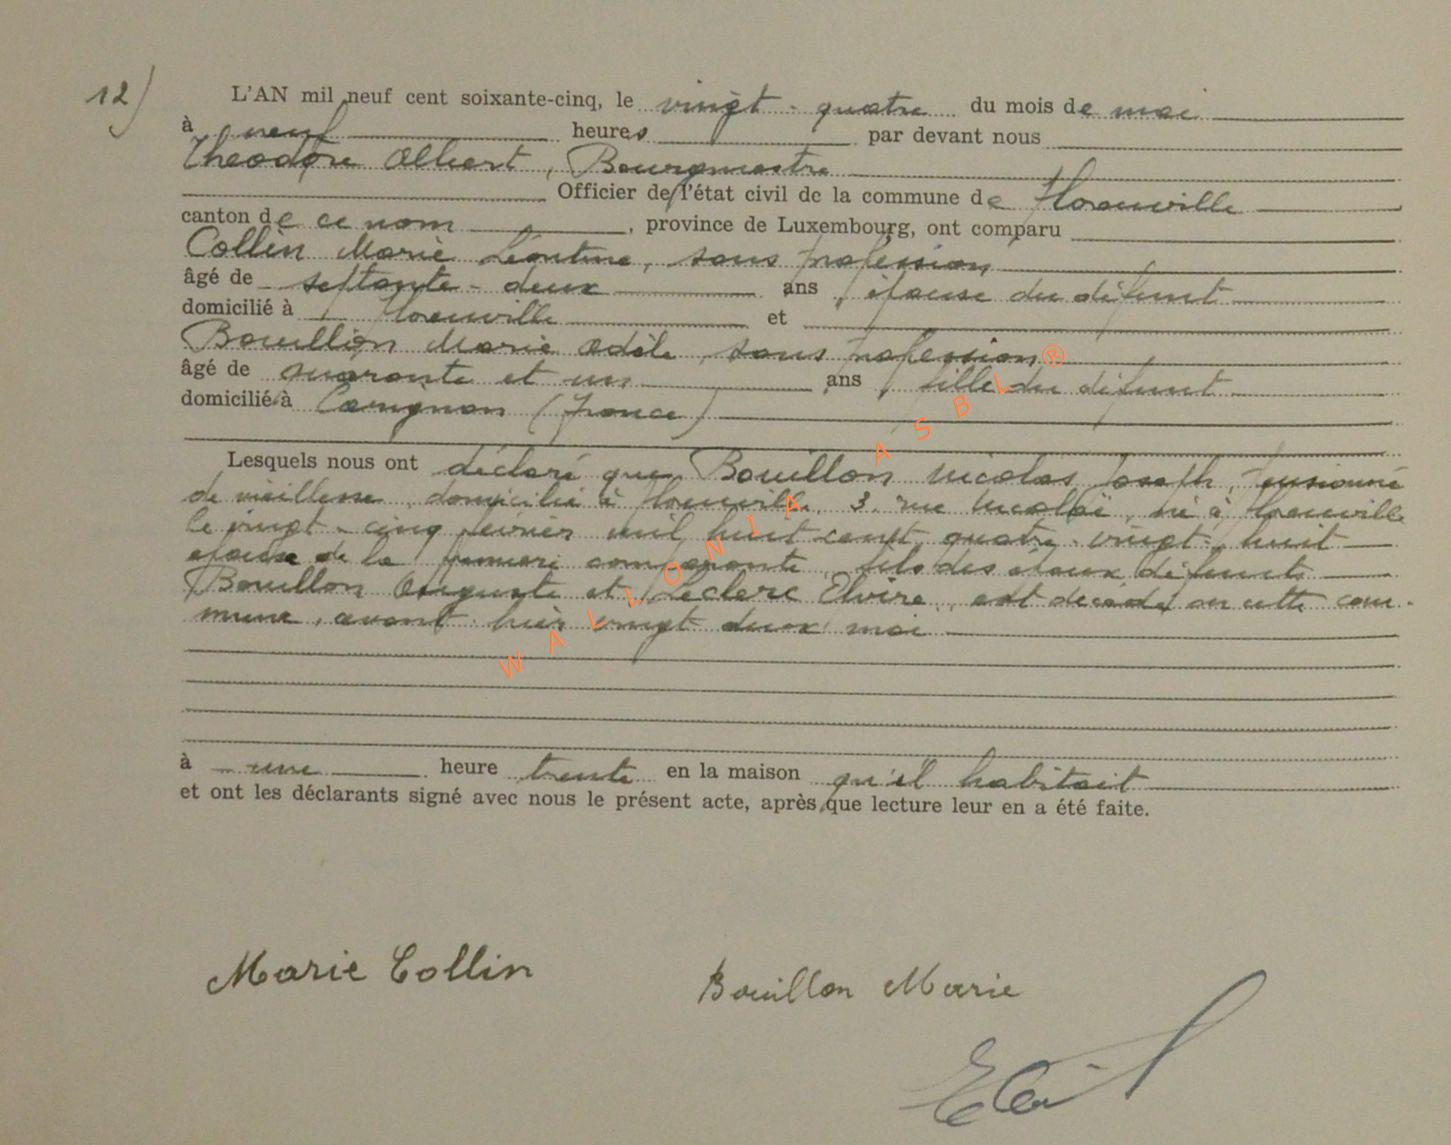 12)
L'AN mil neuf cent soixante-cinq, le vingt-quatre du mois de mai
à neuf heures par devant nous
Théodore Albert, Bourgmestre
Officier de l'état civil de la commune de Florenville
canton de ce nom, province de Luxembourg, ont comparu
Collin Marie Léontine, sans profession
âgé de septante-deux ans, épouse du défunt
domicilié à Florenville et
Bouillon Marie Adèle, sans profession
âgé de quarante et un ans, fille du défunt
domicilié à Carignan (France)
Lesquels nous ont déclaré que Bouillon Nicolas Joseph, pensionné
de vieillesse, domicilié à Florenville, 3, rue Nicolaï, né à Florenville
le vingt-cinq février mil huit cent quatre-vingt-huit
époux de la première comparante, fils des époux défunts
Bouillon Auguste et Leclerc Elvire, est décédé en cette com-
mune, avant-hier vingt deux mai
à une heure trente en la maison qu'il habitait
et ont les déclarants signé avec nous le présent acte, après que lecture leur en a été faite.
Marie Collin
Bouillon Marie
WALLONIA ASBL ®